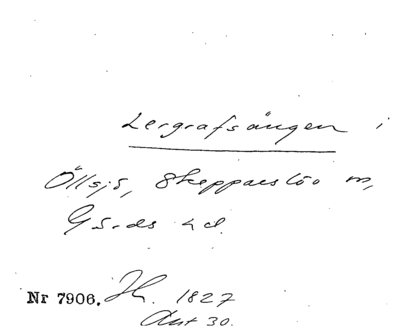 Lergrafsängen i
Öllsjö, Skepparslöv m,
Gärds hd.
Nr 7906. Jh. 1827
Aut 30.